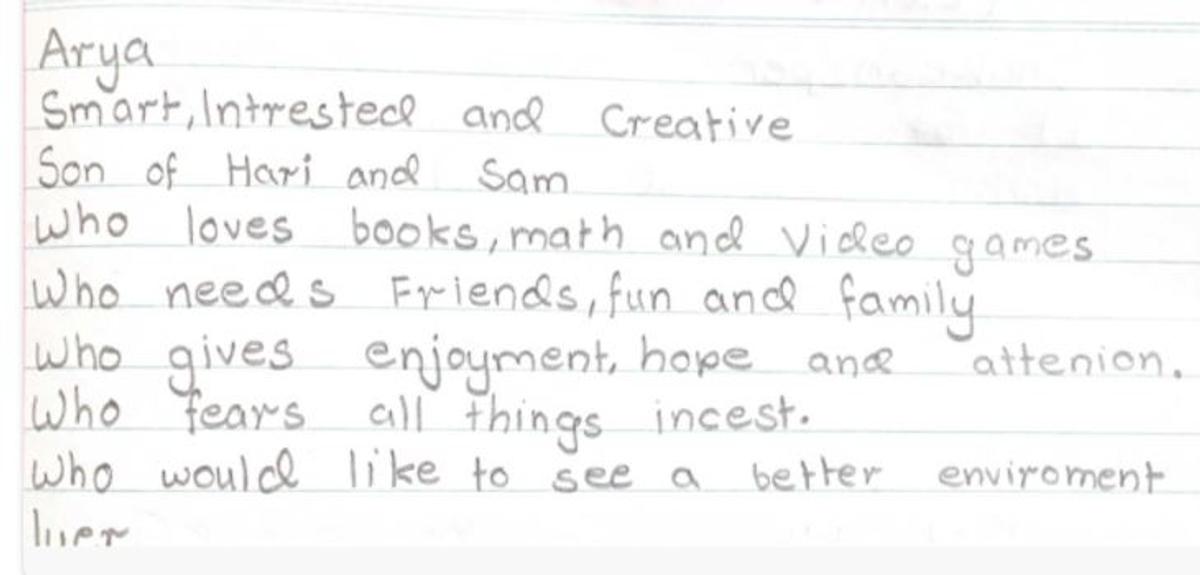 Arya
Smart, Intrested and Creative
Son of Hari and Sam
Who loves books, math and Video games
Who needs Friends, fun and family
Who gives enjoyment, hope and attenion.
Who fears all things incest.
Who would like to see a better enviroment